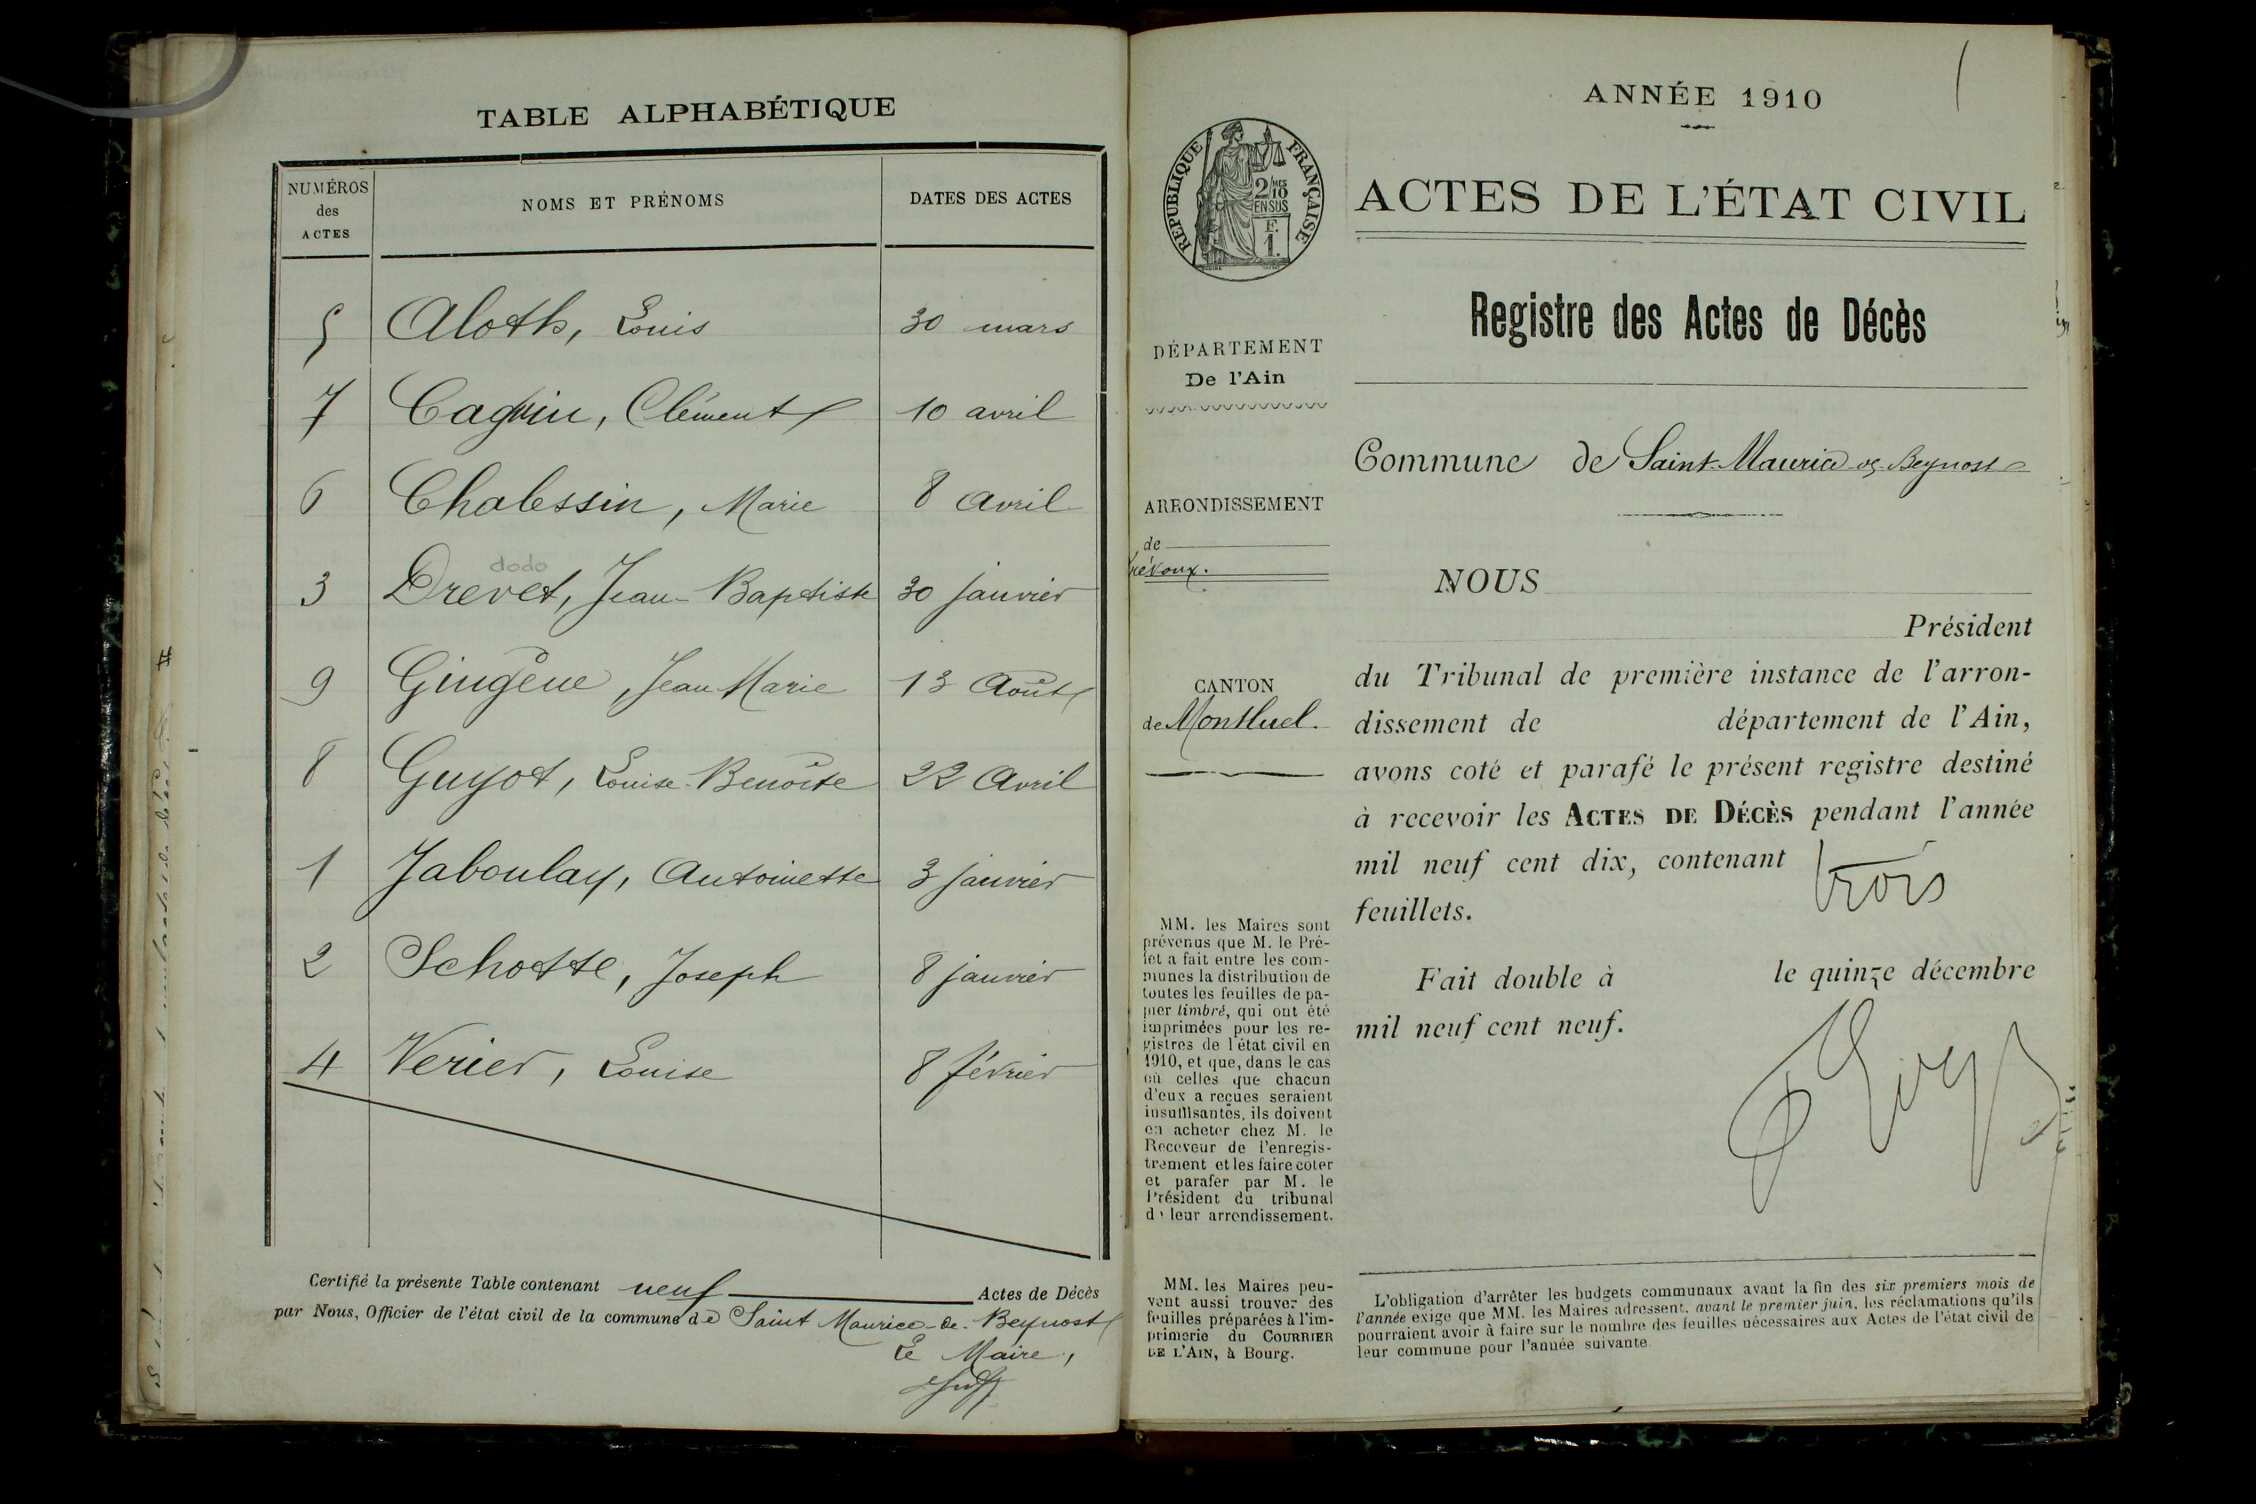 TABLE ALPHABÉTIQUE
NUMÉROS des ACTES
NOMS ET PRÉNOMS
DATES DES ACTES
5 Aloth, Louis 30 mars
7 Cagnin, Clément 10 avril
6 Chalessin, Marie 8 avril
dodo
3 Drevet, Jean-Baptiste 30 janvier
9 Gingène, Jean Marie 13 Août
8 Guyot, Louise-Benoîte 22 Avril
1 Jaboulay, Antoinette 3 janvier
2 Schotte, Joseph 8 janvier
4 Verier, Louise 8 février
Certifié la présente Table contenant neuf Actes de Décès
par Nous, Officier de l'état civil de la commune de Saint Maurice-de-Beynost
Le Maire,
ANNÉE 1910
RÉPUBLIQUE FRANÇAISE
2/10 MES
EN SUS
F.
1.
ACTES DE L'ÉTAT CIVIL
Registre des Actes de Décès
DÉPARTEMENT
De l'Ain
Commune de Saint-Maurice-de-Beynost
ARRONDISSEMENT
de
Trévoux.
CANTON
de Montluel.
MM. les Maires sont
prévenus que M. le Pré-
fet a fait entre les com-
munes la distribution de
toutes les feuilles de pa-
pier timbré, qui ont été
imprimées pour les re-
gistres de l'état civil en
1910, et que, dans le cas
où celles que chacun
d'eux a reçues seraient
insuffisantes, ils doivent
en acheter chez M. le
Receveur de l'enregis-
trement et les faire coter
et parafer par M. le
Président du tribunal
de leur arrondissement.
MM. les Maires peu-
vent aussi trouver des
feuilles préparées à l'im-
primerie du COURRIER
DE L'AIN, à Bourg.
NOUS
Président
du Tribunal de première instance de l'arron-
dissement de département de l'Ain,
avons coté et parafé le présent registre destiné
à recevoir les ACTES DE DÉCÈS pendant l'année
mil neuf cent dix, contenant trois
feuillets.
Fait double à le quinze décembre
mil neuf cent neuf.
L'obligation d'arrêter les budgets communaux avant la fin des six premiers mois de
l'année exige que MM. les Maires adressent, avant le premier juin, les réclamations qu'ils
pourraient avoir à faire sur le nombre des feuilles nécessaires aux Actes de l'état civil de
leur commune pour l'année suivante.